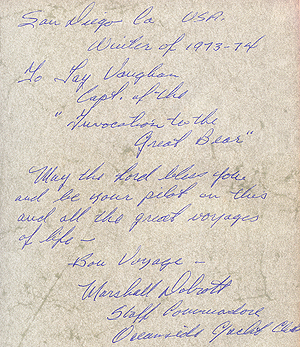 San Diego Ca USA.
Winter of 1973-74
To Jay Vaughan
Capt. of the
"Invocation to the
Great Bear"
May the Lord bless you
and be your pilot on this
and all the great voyages
of life —
Bon Voyage —
Marshall
Staff Commodore
Oceanside Yacht Club